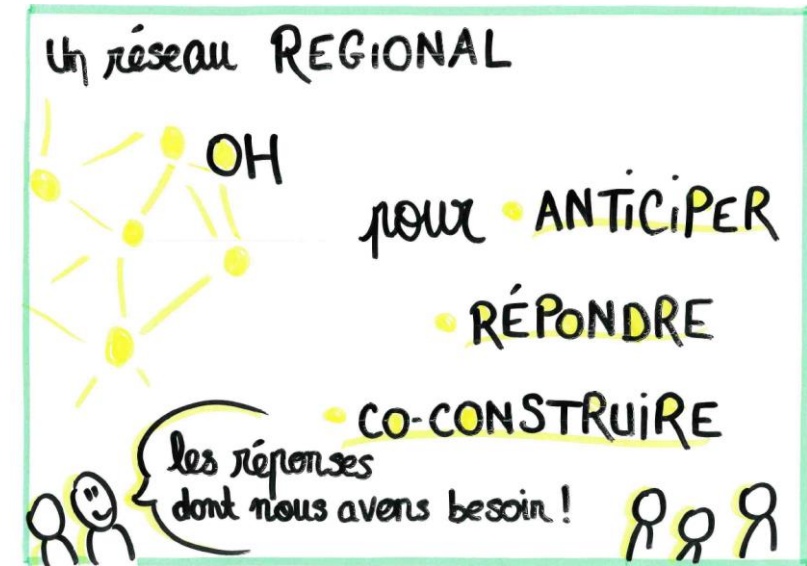 Un réseau REGIONAL
OH
pour • ANTiCiPER
• RÉPONDRE
• CO-CONSTRUiRE
les réponses
dont nous avons besoin !